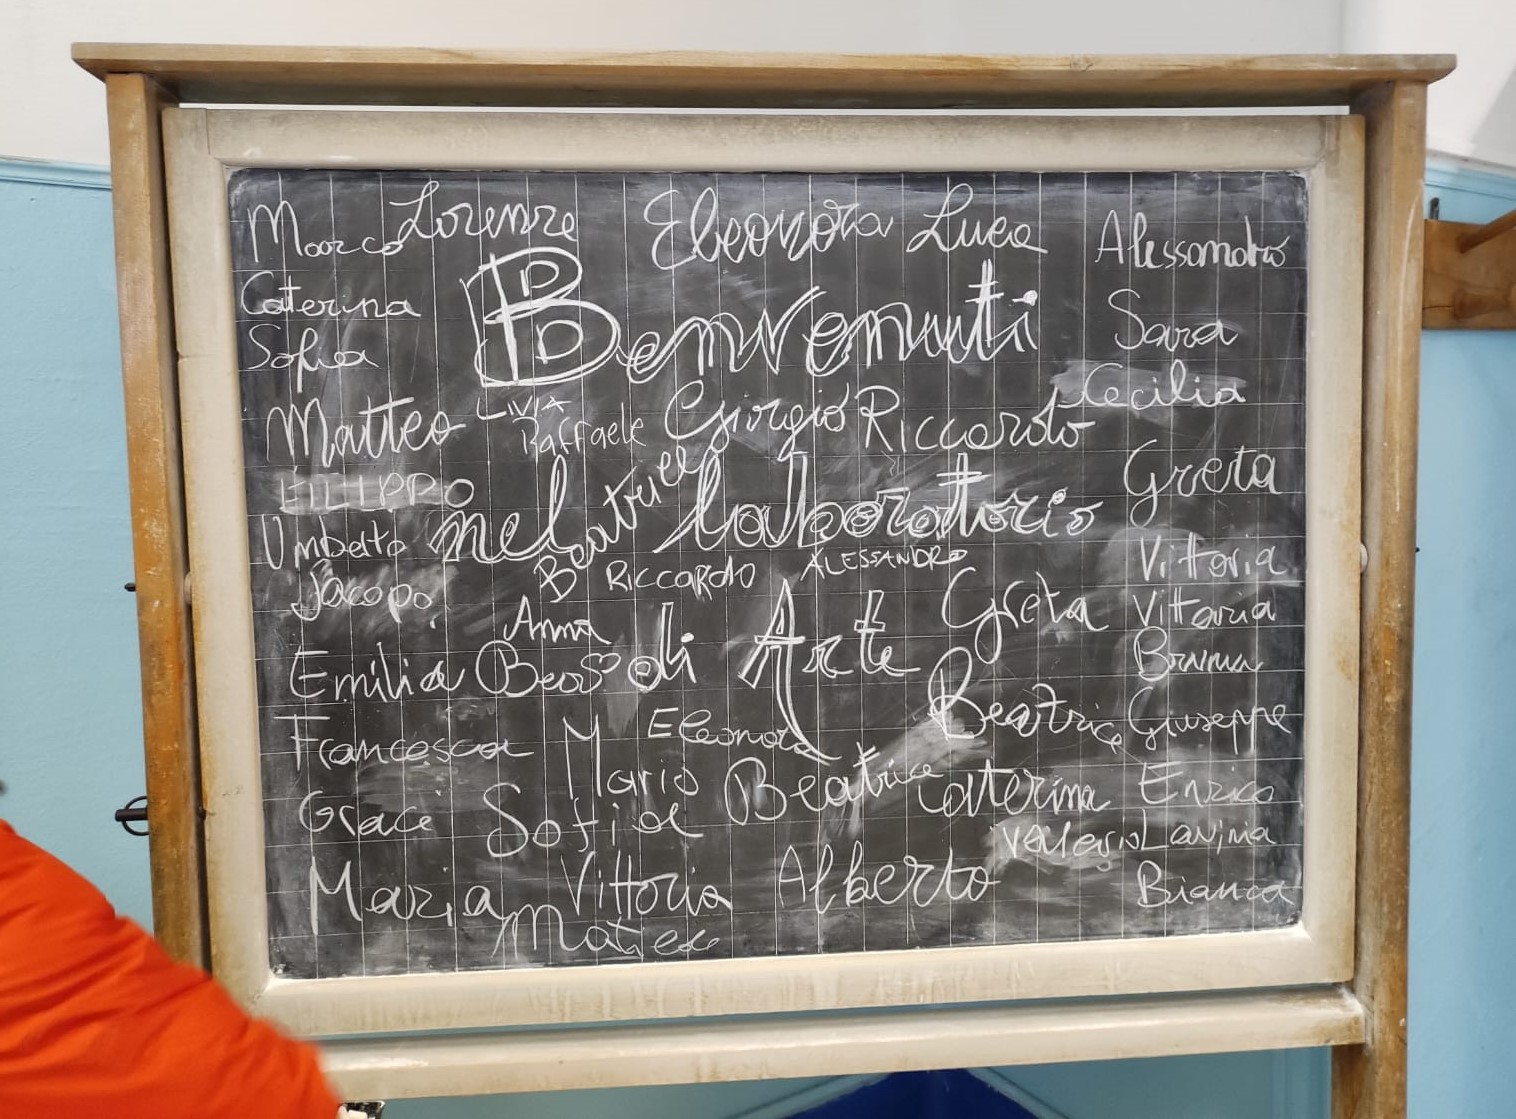 Marco Lorenzo Eleonora Luca Alessandro
Caterina Benvenuti Sara
Sofia Cecilia
Matteo LIVIA Raffaele Giorgio Riccardo Greta
FILIPPO Beatrice
Umberto nel laboratorio Vittoria
Jacopo! RICCARDO ALESSANDRO Greta Vittoria
Anna Bruna
Emilia di Arte Beatrice Giuseppe
Francesca Mario Eleonora
Grace Sofia Beatrice Caterina Enrico
Valerio Lavinia
Maria Vittoria Alberto Bianca